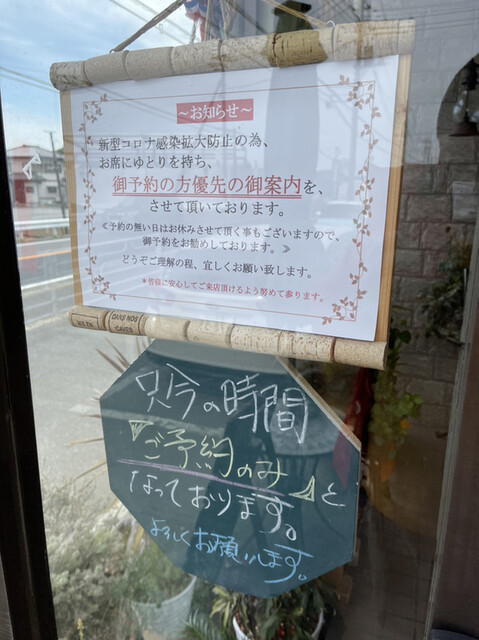 ～お知らせ～
新型コロナ感染拡大防止の為、
お席にゆとりを持ち、
御予約の方優先の御案内を、
させて頂いております。
≪予約の無い日はお休みさせて頂く事もございますので、
御予約をお勧めしております。≫
どうぞご理解の程、宜しくお願い致します。
＊皆様に安心してご来店頂けるよう努めて参ります。
DANS NOS
CAVES
只今の時間
『ご予約のみ』と
なっております。
よろしくお願いします。